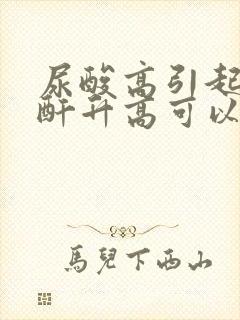 尿酸高引起
酐升高可以
馬兒下西山